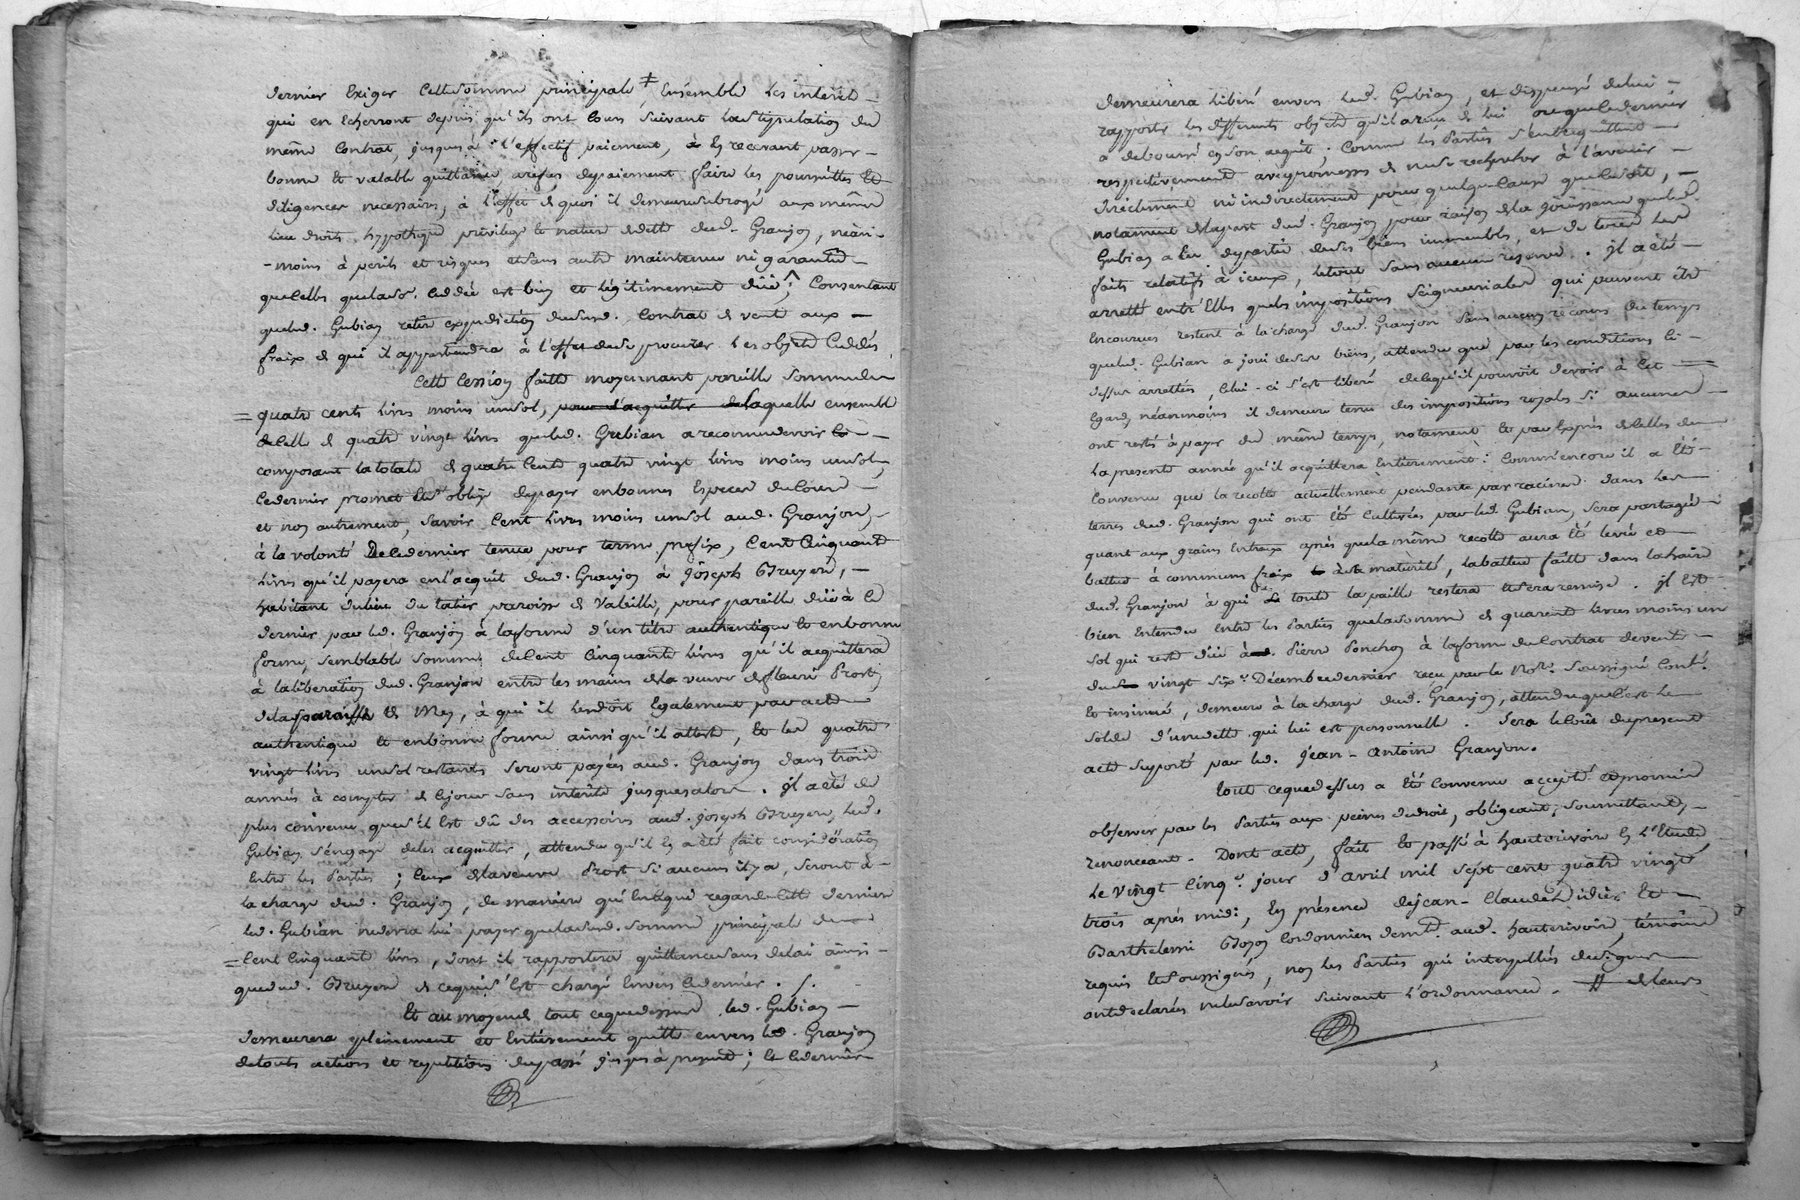 dernier Exiger Cette somme principale ‡, Ensemble les interêt
qui en Echerront depuis qu'ils ont Cours suivant la stipulation du
même Contrat, jusques à l'effectif paiement, & En recevant passer
bonne Et valable quittance, à refus de paiement faire les poursuittes Et
diligences necessaires, à l'effet de quoi il demeure subrogé aux mêmes
lieu droits, hypotheque privilege Et nature de dette dud. Granjon, néan-
-moins à perils et risques et sans autre maintenue ni garantie
que Celle que lasd. Ceddée est bien et légitimement düe ; Consentant
que led. Gubian retire expedition dususd. Contrat de vente aux
fraix de qui il appartiendra à l'effet de se procurer les objets Ceddés,
Cette Cession faitte moyennant pareille Somme de
= quatre cents livres moins un sol, pour d'acquitter de laquelle ensemble
de Celle de quatre vingt livres que led. Grebian a reconnu devoir
composant la totale de quatre Cent quatre vingt livres moins un sol,
Ce dernier promet Et s'oblige de payer en bonnes Especes du Cours
et non autrement, Savoir Cent livres moins un sol aud. Granjon,
à la volonté De Ce dernier tenue pour terme prefix, Cent Cinquante
livres qu'il payera en l'acquit dud. Granjon à Joseph Bruyere,
habitant du lieu du tatier paroisse de Valeille, pour pareille düe à Ce
dernier par led. Granjon à la forme d'un titre authentique Et en bonne
forme, semblable Somme de Cent Cinquante livres qu'il acquittera
à la libération dud. Granjon entre les mains de la veuve de fleuri Prost,
de la paroisse de Mey, à qui il les doit Egalement par acte
authentique Et en bonne forme ainsi qu'il atteste, Et les quatre
vingt livres un sol restants seront payées aud. Granjon dans trois
années à compter de Ce jour sans interêts jusques alors. Il a eté de
plus convenu que s'il Est dû des accessoires aud. Joseph Bruyere, led.
Gubian s'engage de les acquitter, attendu qu'il En a eté fait considération
Entre les Parties ; Ceux de la veuve Prost si aucuns il y a, seront à
la charge dud. Granjon, de maniere qu'En ce qui regarde Cette derniere
led. Gubian ne devra lui payer que la susd. Somme principale de
= Cent Cinquante livres, dont il rapportera quittance sans delai ainsi
que dud. Bruyere de ce qu'il s'Est chargé Envers Ce dernier.
Et au moyen de tout ce que dessus led. Gubian
demeurera pleinement et Entièrement quitte envers led. Granjon
de touts actions et repetitions du passé jusques à present ; & Ce dernier
demeurera liberé envers led. Gubian, et dispensé de lui
rapporter les differents objets qu'il a reçu de lui ou que Ce dernier
a deboursé en son acquit ; Comme les Parties s'entrequittent
respectivement avec promesses de ne se rechercher à l'avenir
directement ni indirectement pour quelque Cause que Ce soit,
notament de la part dud. Granjon pour raison de la jouissance que led.
Gubian a Eu de partie de ses biens immeubles, et du
faits relatifs à iceux, le tout sans aucune reserve. Il a eté
arretté entr'Elles que les impositions Seigneuriales qui peuvent être
Encourues restent à la charge dud. Granjon sans aucun recours du temps
que led. Gubian a joui de ses biens, attendu que par les conditions Ci-
dessus arrettées, Celui-ci s'est liberé de Ce qu'il pouvoit devoir à Cet
Egard, néanmoins il demeure tenu des impositions royales si aucunes
ont resté à payer du même temps, notament Et par Exprès de Celles de
la presente année qu'il acquittera Entierement : Comm'encore il a Eté
Convenu que la recolte actuellement pendante par racines dans les
terres dud. Granjon qui ont Eté Cultivées par led. Gubian, sera partagée
quant aux grains Entr'eux après que la même recolte aura Eté levée et
battue à communs fraix à sa maturité, la battue faitte dans la haire
dud. Granjon à qui toute la paille restera Et sera remise. Il Est
bien Entendu Entre les Parties que la somme de quarente livres moins un
sol qui reste düe à Pierre Ponchon à la forme du Contrat de vente
du vingt six.e Décembre dernier reçu par le No.re Soussigné Cont.é
Et insinué, demeure à la charge dud. Granjon, attendu que C'est le
solde d'une dette qui lui est personnelle. Sera le Coût du present
acte Supporté par led. Jean-Antoine Granjon.
tout ce que dessus a Eté Convenu accepté et promis
observer par les Parties aux peines de droit, obligeant, Soumettant,
renonceant. Dont acte, fait Et passé à hauterivoire En l'Etude,
le vingt Cinq.e jour d'avril mil sept cent quatre vingt
trois après midi, En présence de jean-Claude Didier Et
Barthelemi Bozon Cordonnier dem.t aud. hauterivoire, témoins
requis Et Soussignés, non les Parties qui interpellées de signer
ont declarées ne le savoir suivant l'ordonnance. de leurs